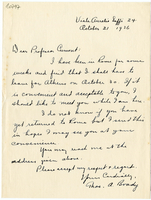 Viale Amelia
October 21 1926
Dear Professor Cumont:
I have been in Rome for some
weeks and find that I shall have to
leave for Athens on October 30. If it
is convenient and acceptable to you, I
should like to meet you while I am here.
I do not know if you have yet
returned to Rome but I send this
in hope I may see you at your
convenience.
You may reach me at the
address given above.
Please accept my respect & regard.
Yours Cordially,
Thos. A. Brady